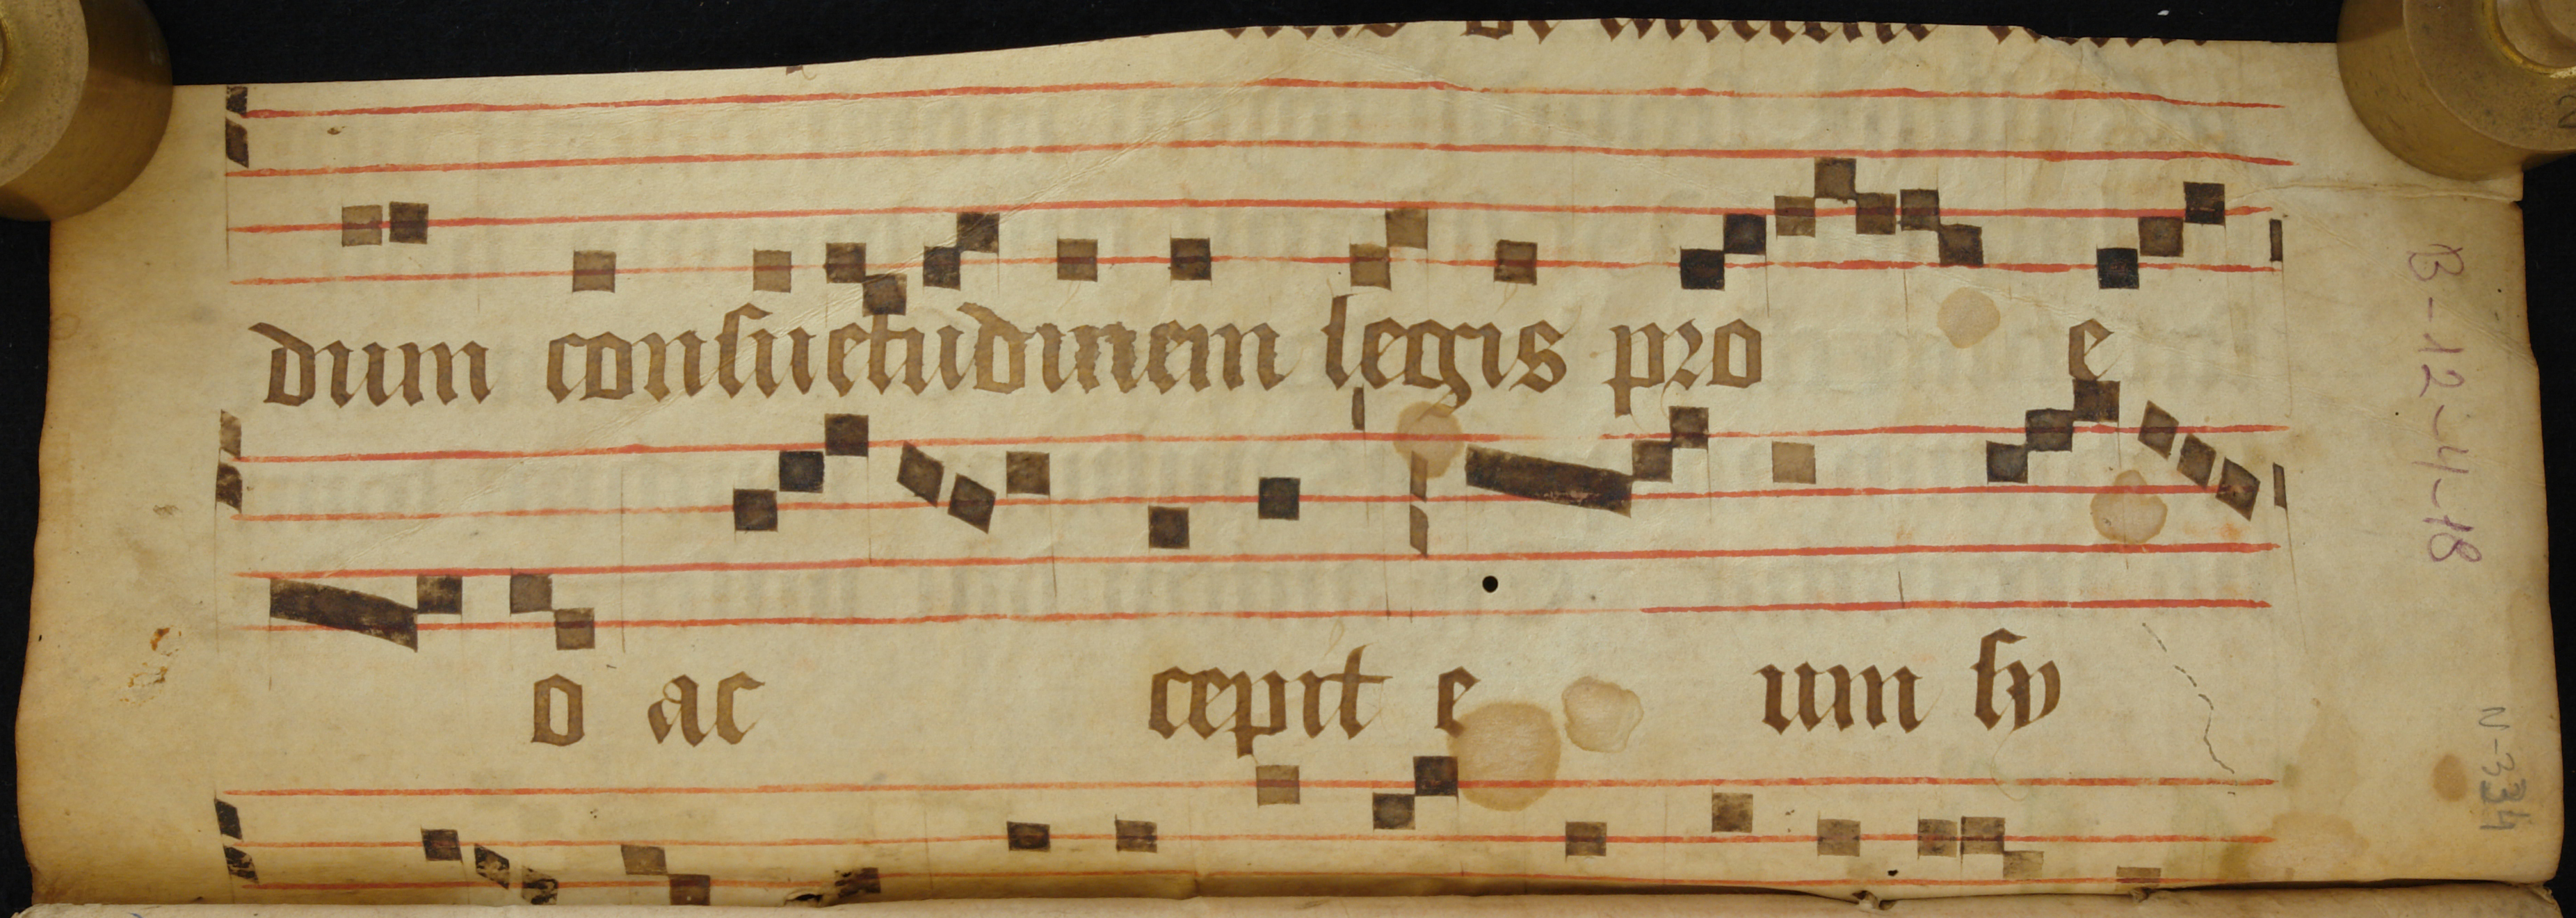 dum consuetudinem legis pro e
o ac cepit e um sy
B-12-4-18
N-334